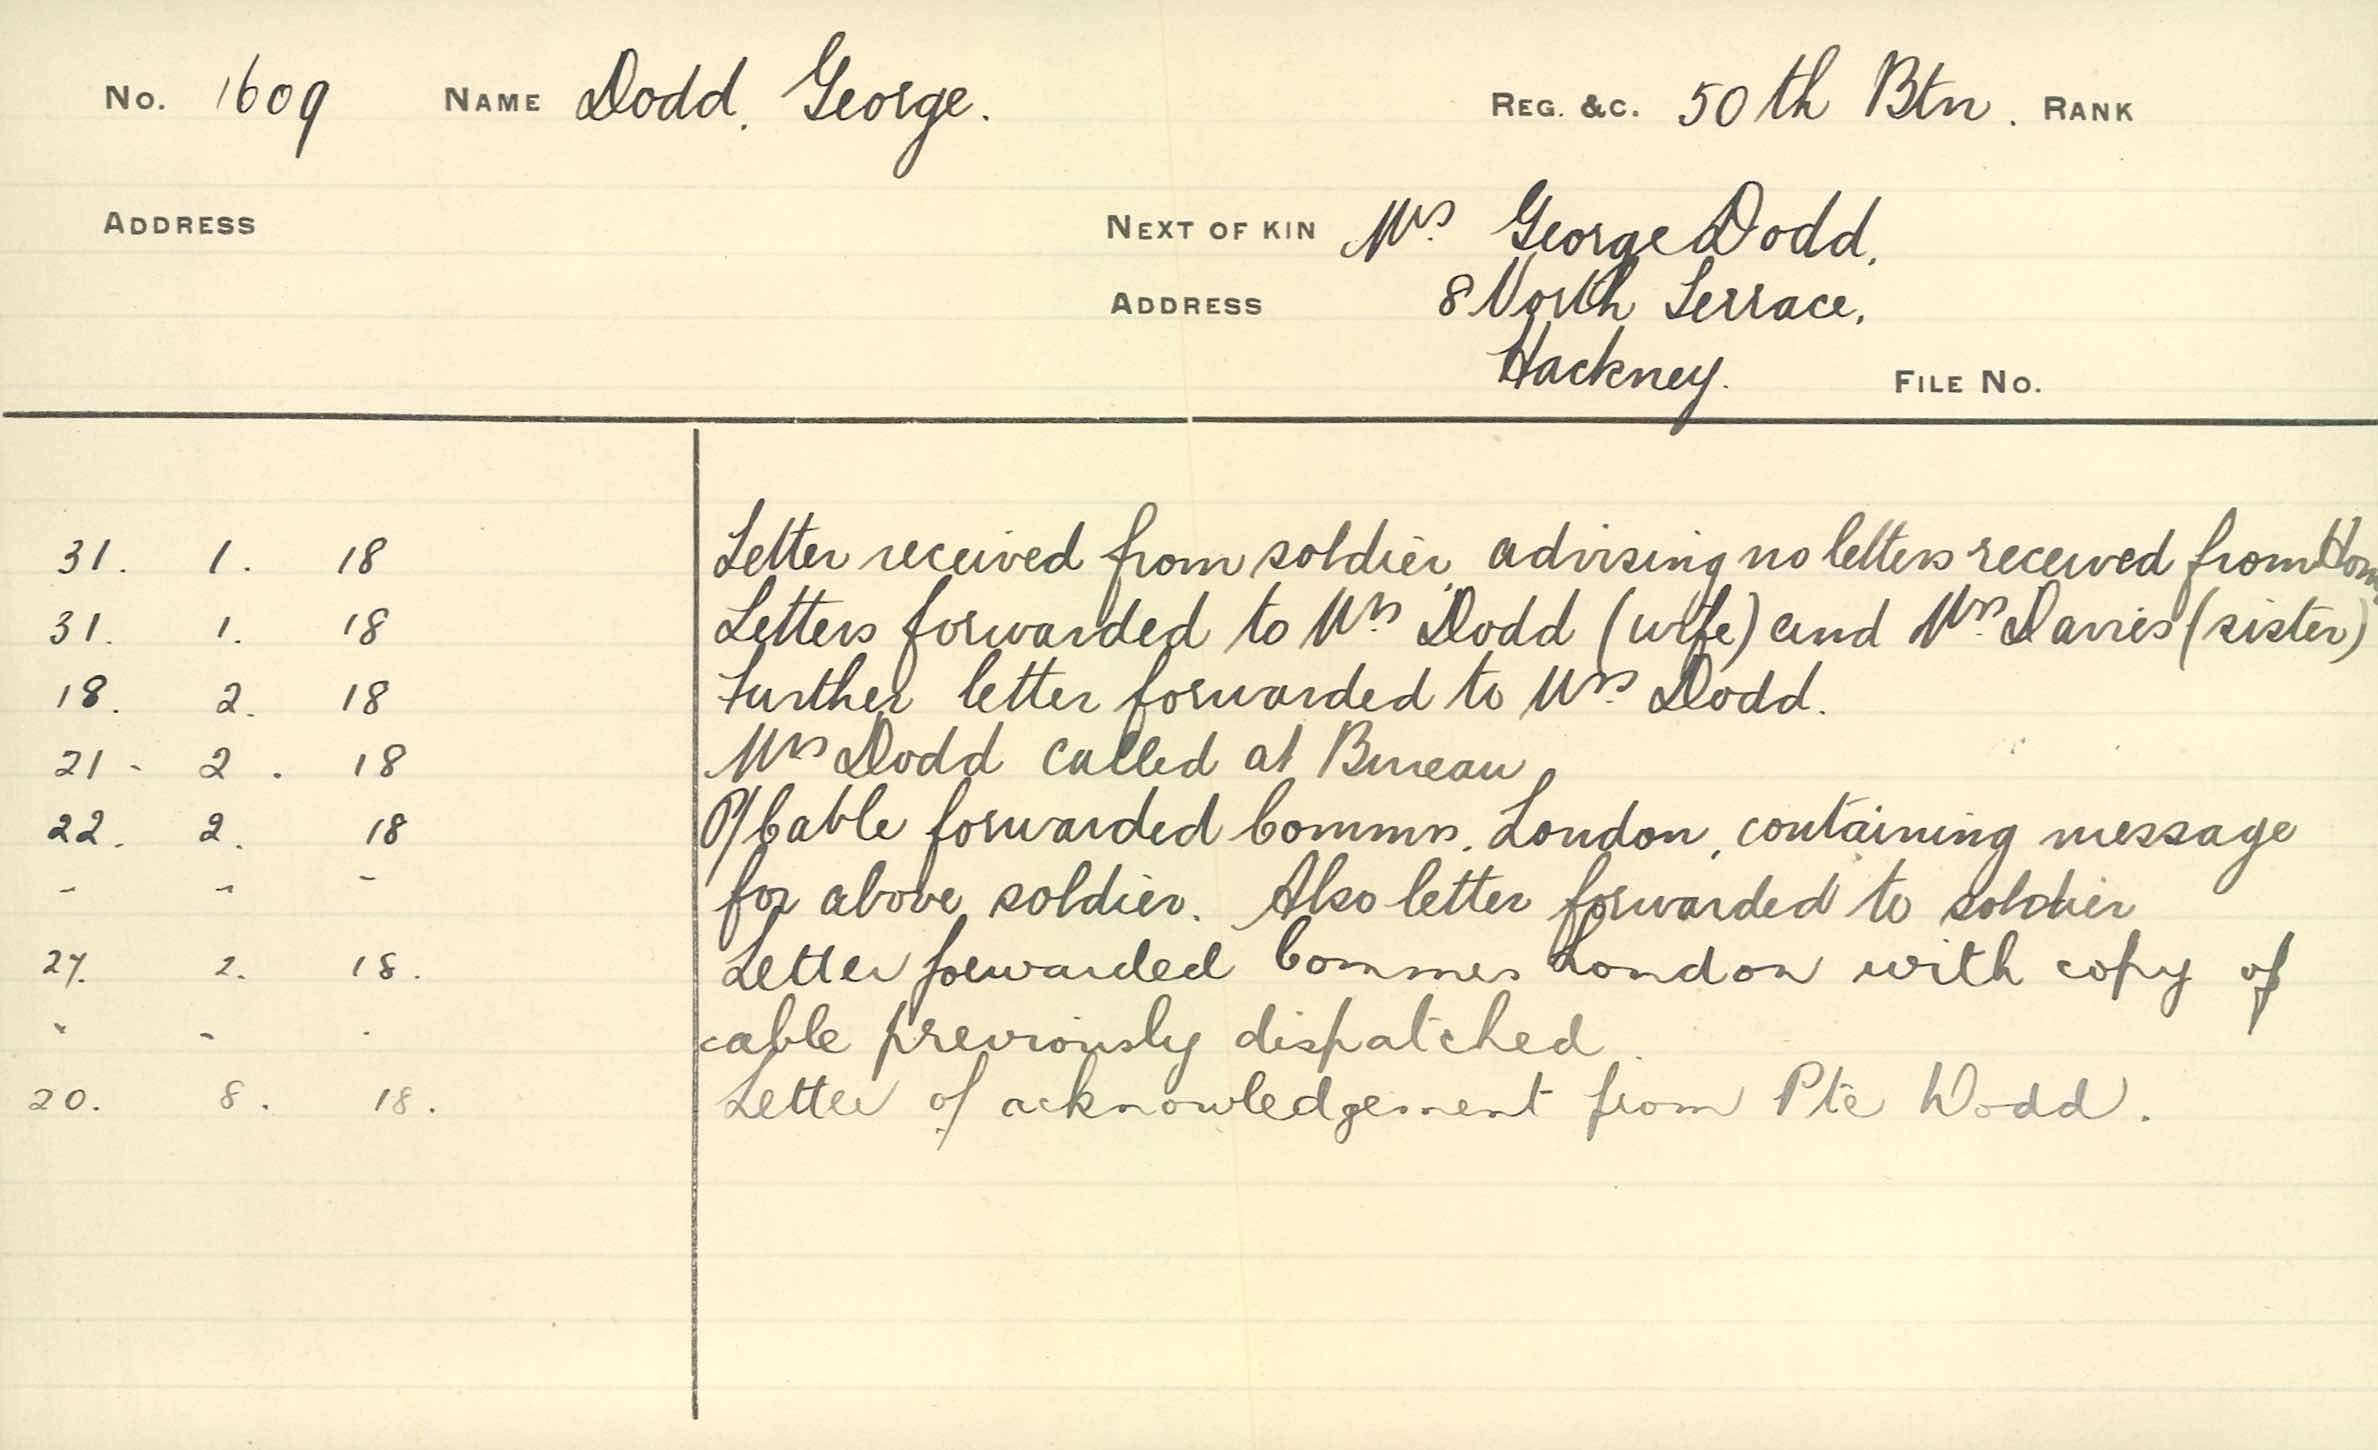 No. 1609 NAME Dodd, George. REG. &C. 50th Btn. RANK
ADDRESS NEXT OF KIN Mrs. George Dodd,
ADDRESS 8 North Terrace,
Hackney. FILE No.
31. 1. 18 Letter received from soldier advising no letters received from Home
31. 1. 18 Letters forwarded to Mrs. Dodd (wife) and Mrs. Davies (sister)
18. 2. 18 Further letter forwarded to Mrs. Dodd.
21 - 2 . 18 Mrs Dodd called at Bureau
22. 2. 18 O/Cable forwarded Commrs. London, containing message
- - - for above soldier. Also letter forwarded to soldier
27. 2. 18. Letter forwarded Commrs London with copy of
" - . cable previously dispatched.
20. 8. 18. Letter of acknowledgement from Pte Dodd.